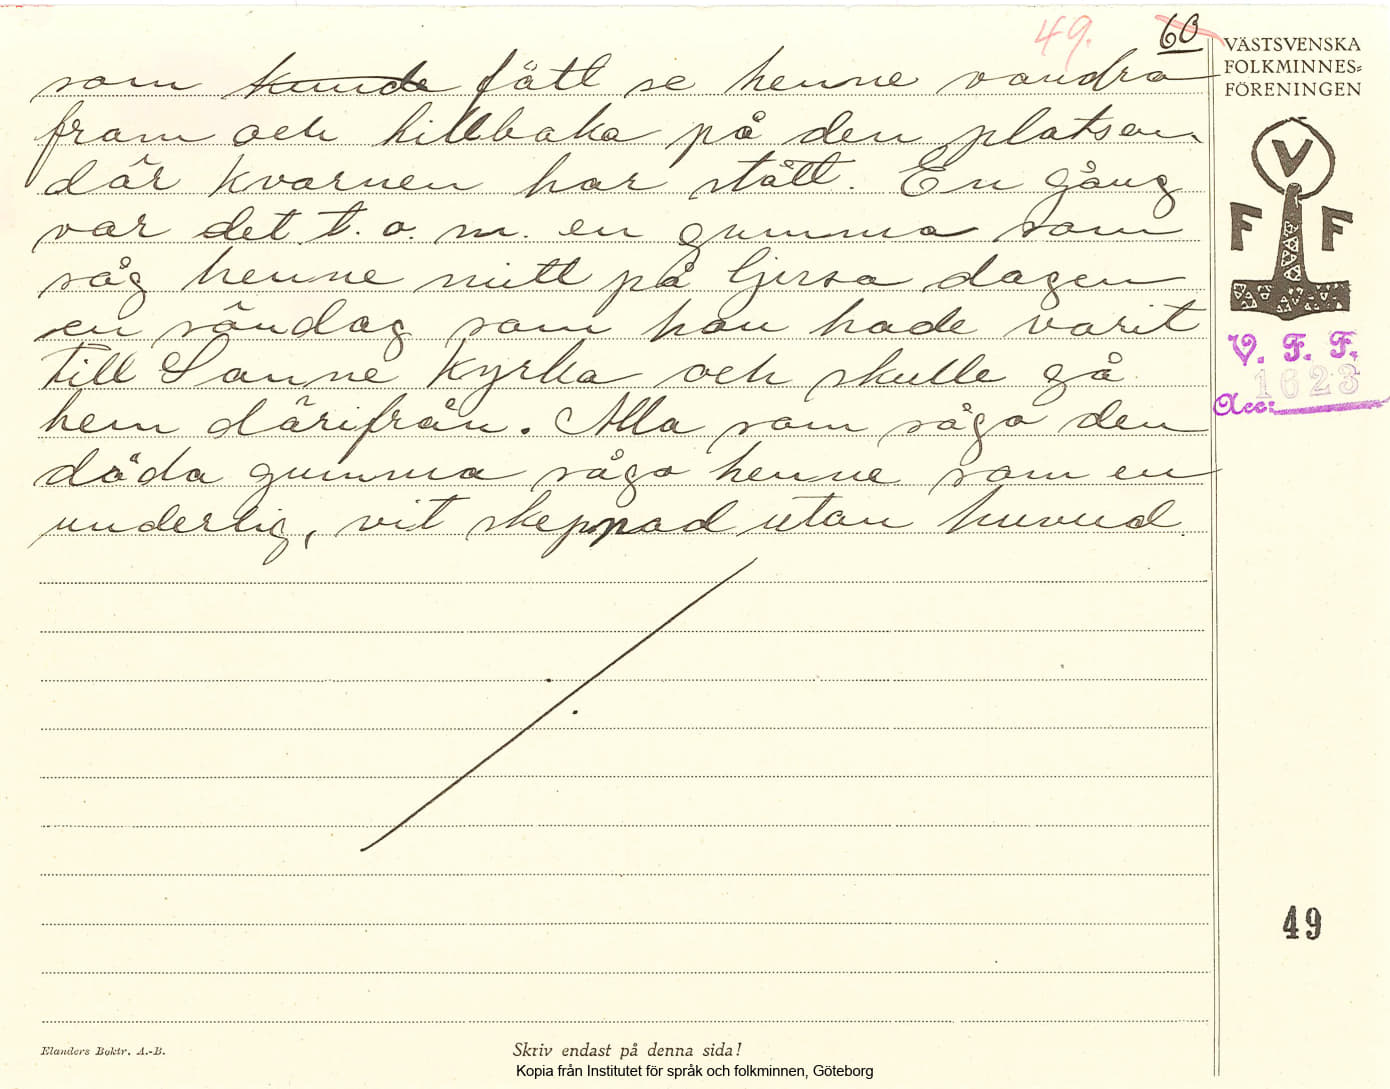 49. 60
VÄSTSVENSKA
FOLKMINNES=
FÖRENINGEN
som kunde fått se henne vandra
fram och tillbaka på den platsen,
där kvarnen har stått. En gång
var det t. o. m. en gumma som
såg henne mitt på ljusa dagen
en söndag som hon hade varit
till Sanne kyrka och skulle gå
hem därifrån. Alla som sågo den
döda gumma sågo henne som en
underlig, vit skepnad utan huvud.
V
F F
V. F. F.
1623
Acc:
49
Elanders Boktr. A.-B.
Skriv endast på denna sida!
Kopia från Institutet för språk och folkminnen, Göteborg